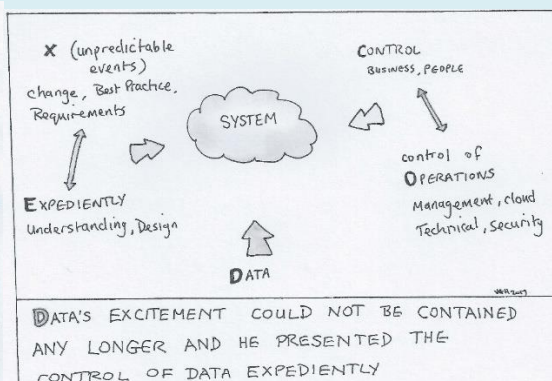 X (unpredictable
events)
change, Best Practice,
Requirements
EXPEDIENTLY
Understanding, Design
SYSTEM
CONTROL
BUSINESS, PEOPLE
control of
OPERATIONS
Management, cloud
Technical, Security
DATA
DATA'S EXCITEMENT COULD NOT BE CONTAINED
ANY LONGER AND HE PRESENTED THE
CONTROL OF DATA EXPEDIENTLY